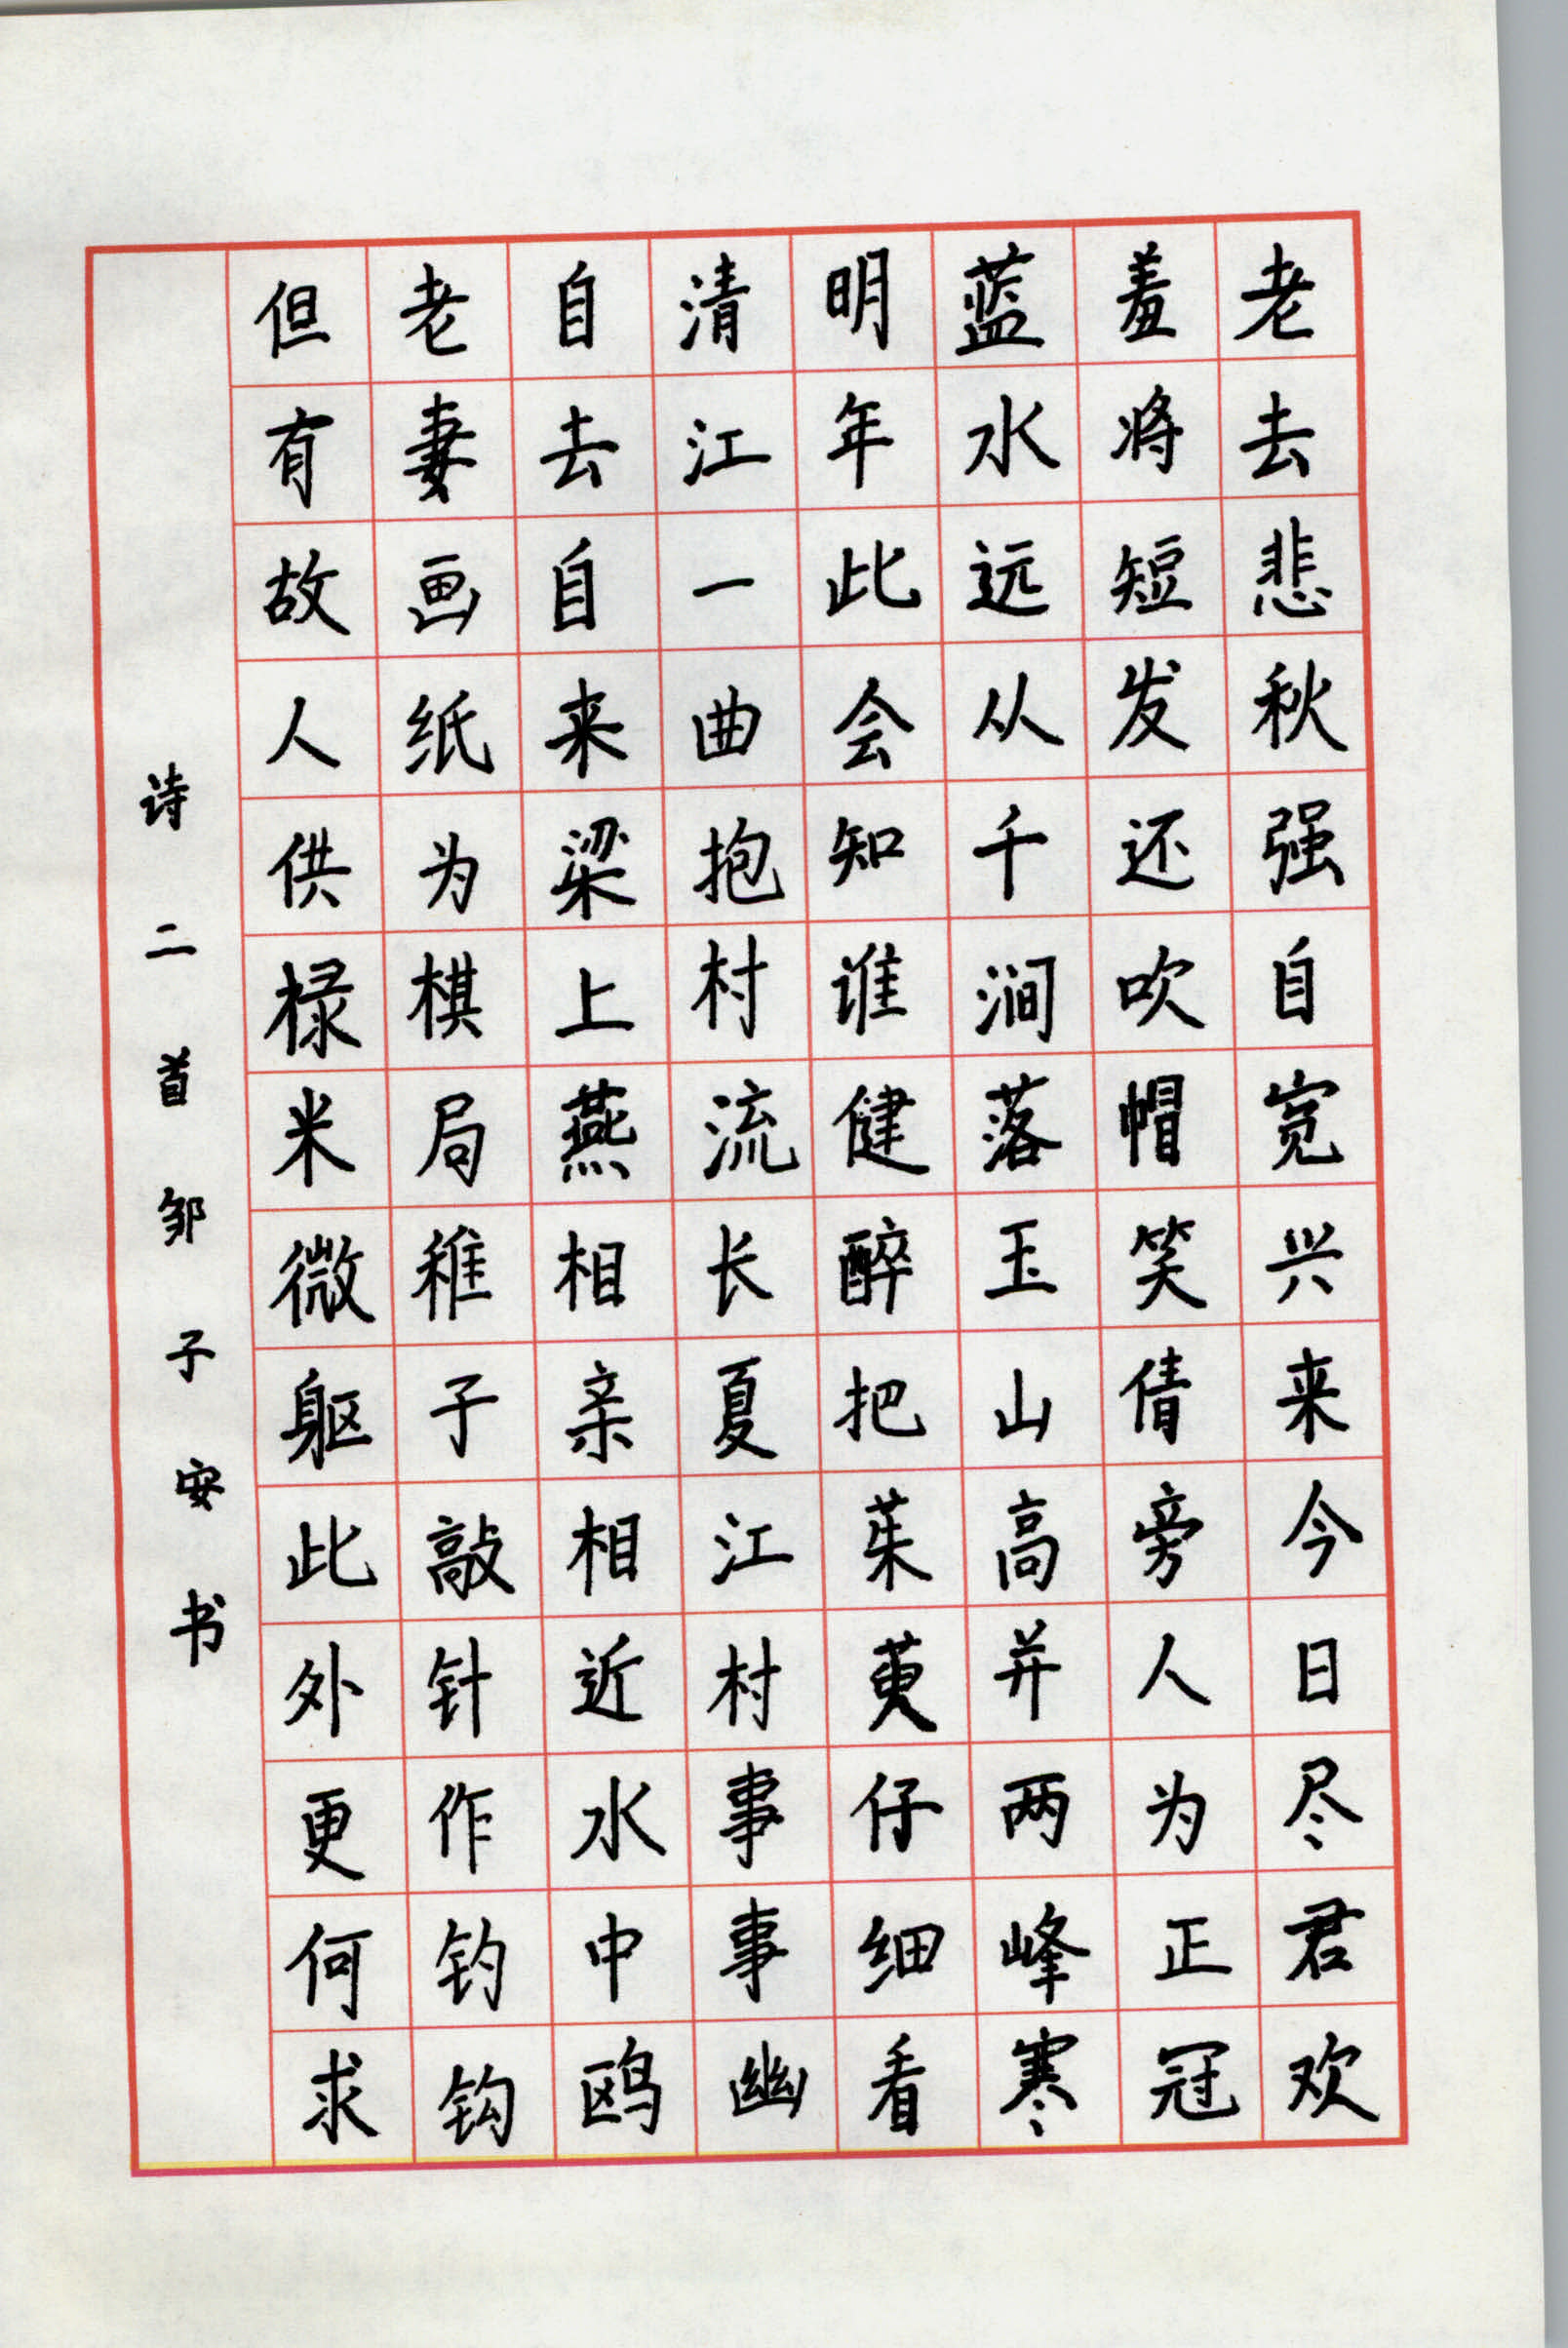 老去悲秋强自宽兴来今日尽君欢
羞将短发还吹帽笑倩旁人为正冠
蓝水远从千涧落玉山高并两峰寒
明年此会知谁健醉把茱萸仔细看
清江一曲抱村流长夏江村事事幽
自去自来梁上燕相亲相近水中鸥
老妻画纸为棋局稚子敲针作钓钩
但有故人供禄米微躯此外更何求
诗二首邹子安书